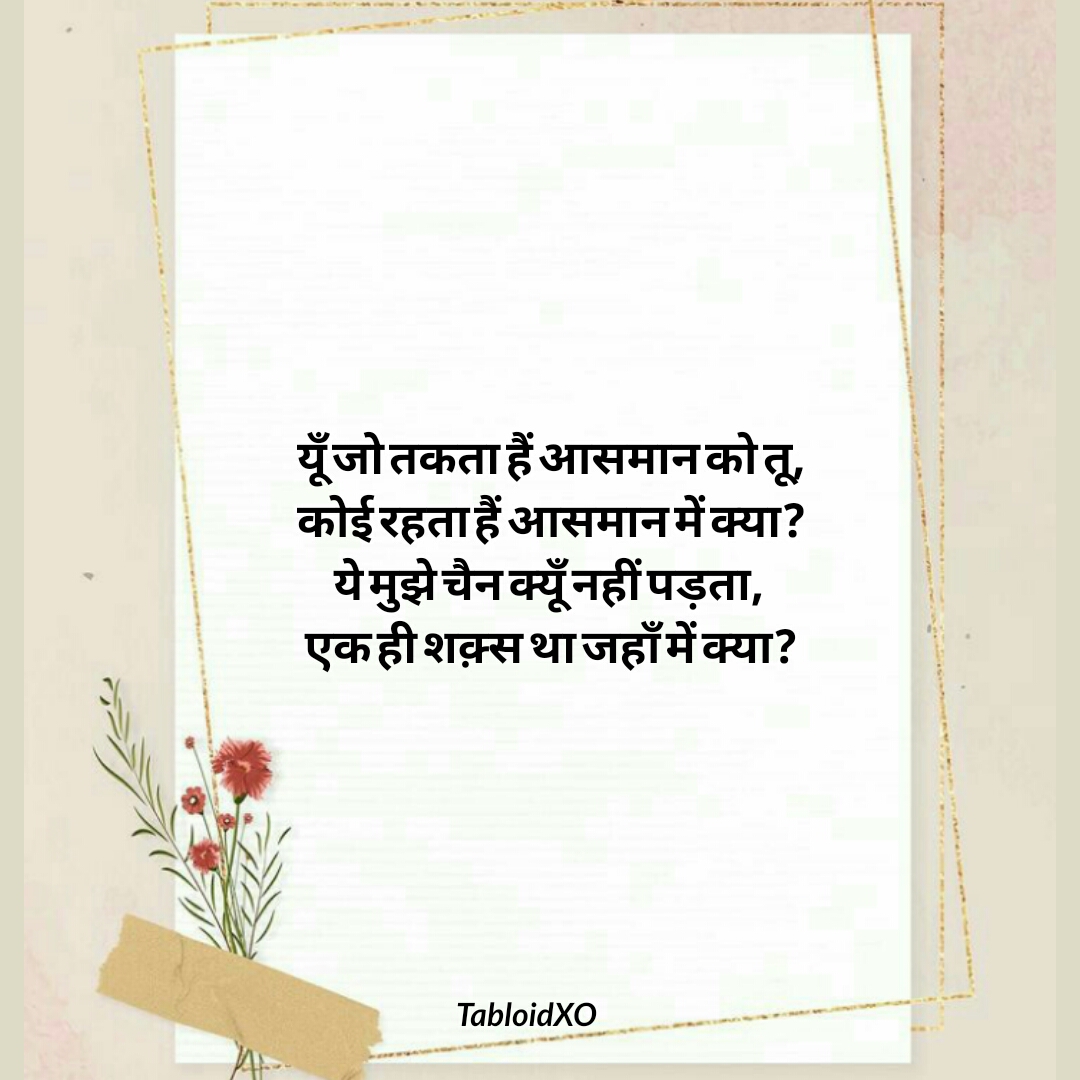 यूँ जो तकता हैं आसमान को तू,
कोई रहता हैं आसमान में क्या?
ये मुझे चैन क्यूँ नहीं पड़ता,
एक ही शक़्स था जहाँ में क्या?
TabloidXO